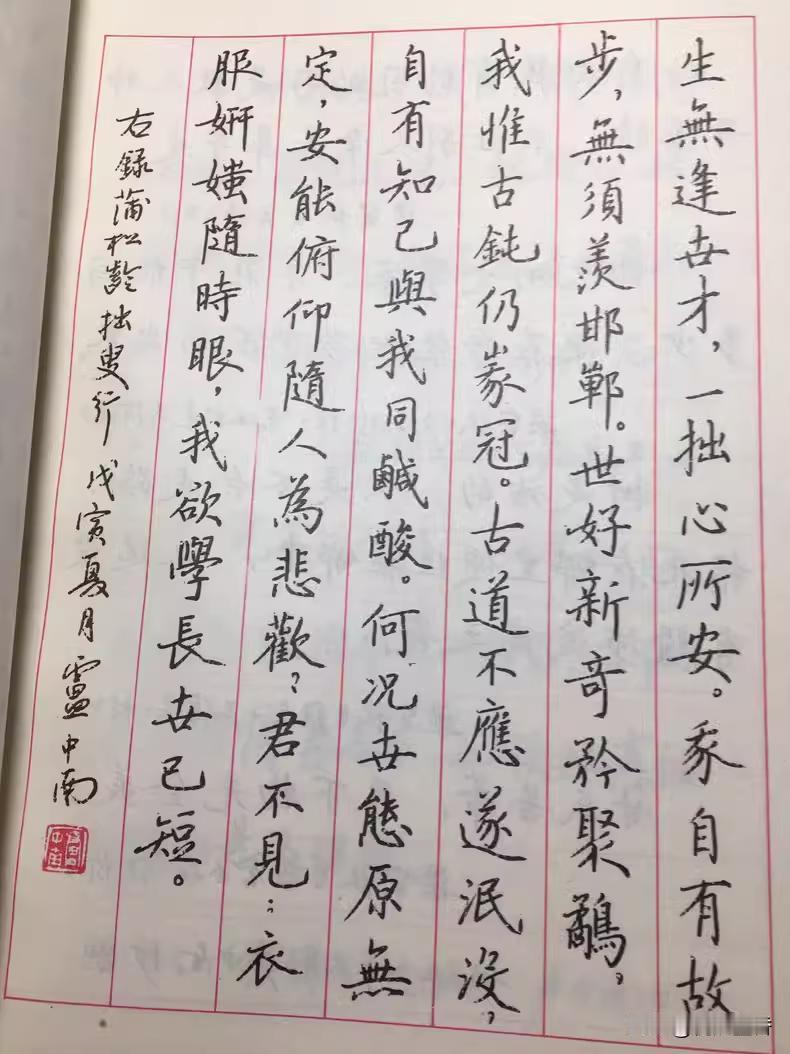 生無逢世才，一拙心所安。我自有故
步，無須羨邯鄲。世好新奇矜聚鷸，
我惟古鈍仍豸冠。古道不應遂泯没，
自有知己與我同鹹酸。何况世態原無
定，安能俯仰隨人為悲歡？君不見：衣
服妍媸隨時眼，我欲學長世已短。
右錄蒲松齡拙叟行 戊寅夏月 盧中南